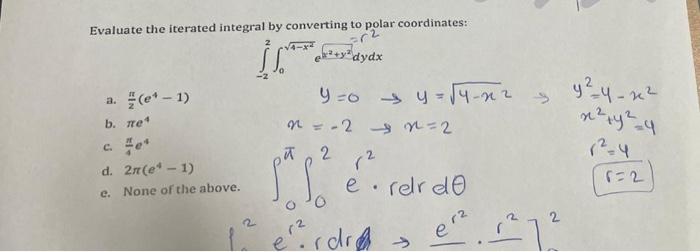 Evaluate the iterated integral by converting to polar coordinates:
= r²
∫₋₂² ∫₀^√(4−x²) e^(x²+y²) dydx
a. π/2 (e⁴ − 1)
b. πe⁴
c. π/4 e⁴
d. 2π(e⁴ − 1)
e. None of the above.
y = 0 → y = √4-x² → y² = 4 - x²
x = -2 → x = 2
x² + y² = 4
r² = 4
r = 2
∫₀^π ∫₀² e^r² · rdr dθ
∫² e^r² · rdr → e^r² · r² ]²